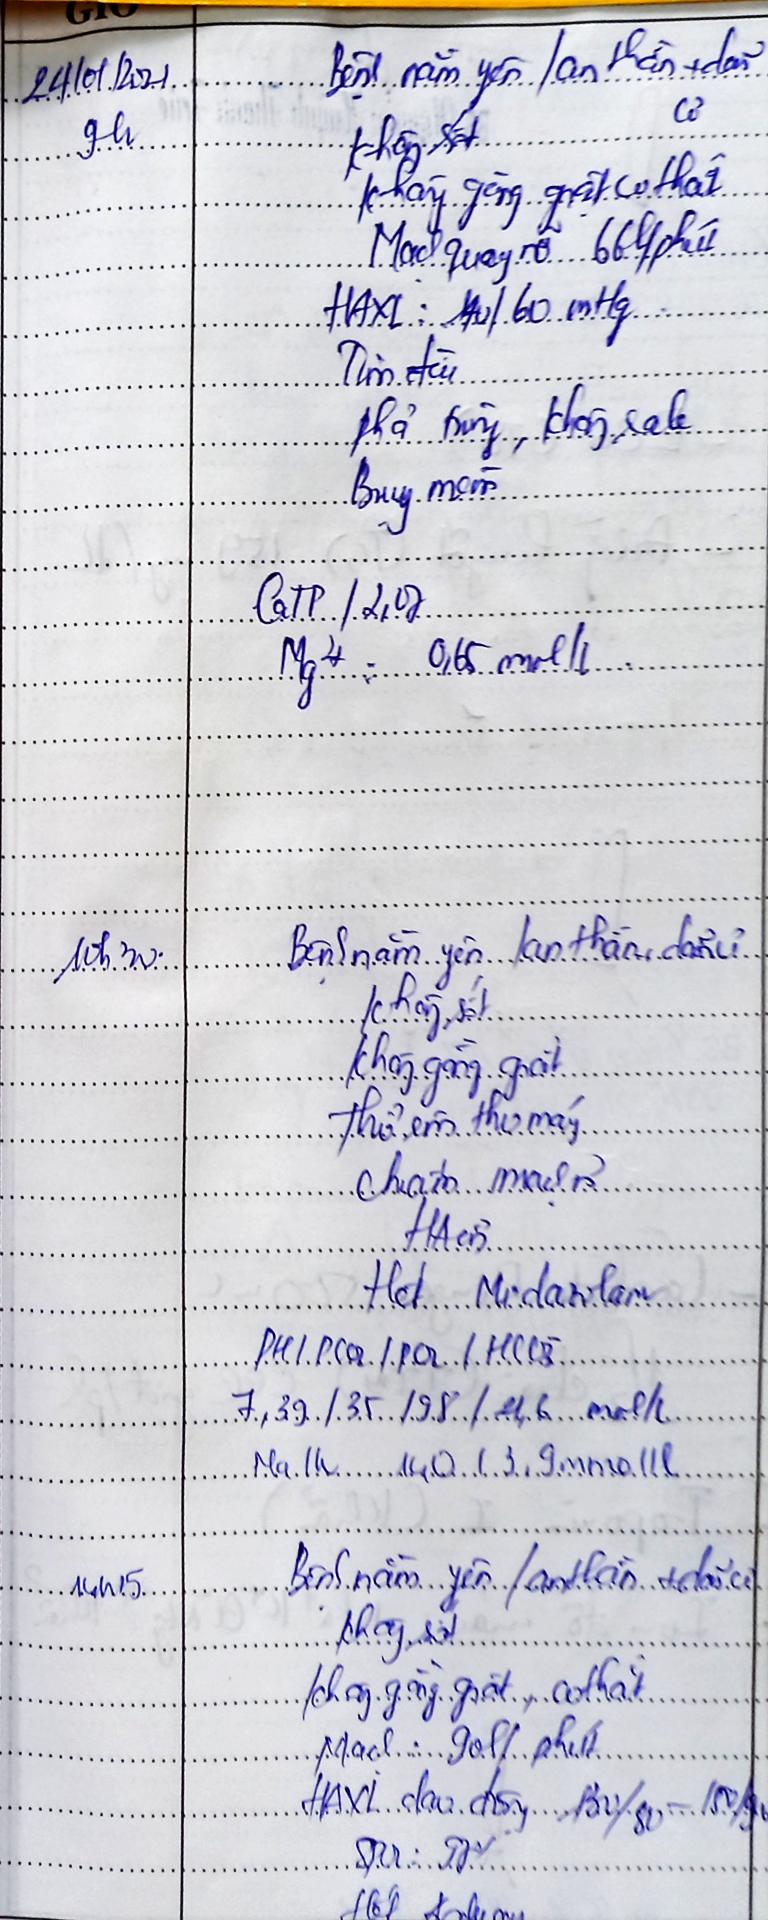 GIỜ
24/01/2021 Bệnh nằm yên / an thần + dãn
cơ
9h không sốt
không gồng giật co thắt
Mạch quay rõ 66 l/phút
HAXL: 140/60 mmHg
Tim đều
phổi trong, không rale
Bụng mềm
CaTP / 2,07
Mg²⁺ : 0,65 mmol/l
10h30 Bệnh nằm yên / an thần, dãn cơ
không sốt
không gồng giật
Thở êm theo máy
chi ấm mạch rõ
HA
Hết Midazolam
PH / PCO2 / PO2 / HCO3
7,39 / 35 / 98 / mmol/l
Na / K 140 / 3,9 mmol/l
14h15 Bệnh nằm yên / an thần + dãn cơ
không sốt
không gồng giật, co thắt
Mạch: 90 l/phút
HAXL dao động 130/80 - 150/90